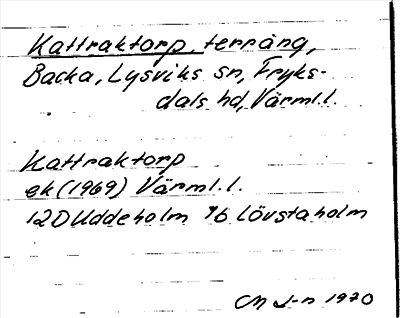 Kattraktorp, terräng,
Backa, Lysviks sn, Fryks-
dals hd, Värml.l.
Kattraktorp
ek (1969) Värml.l.
12D Uddeholm 7b Lövstaholm
CM J-n 1970